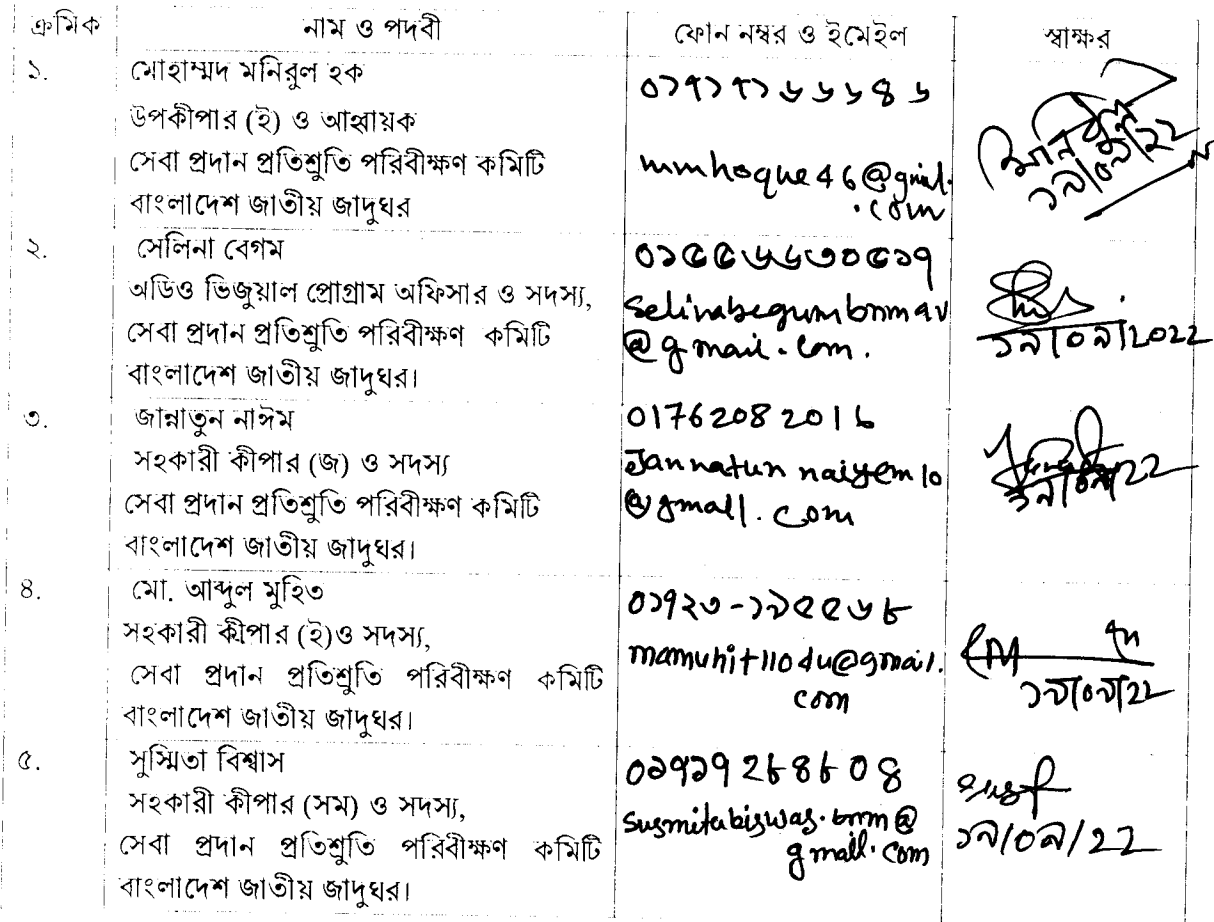 ক্রমিক নাম ও পদবী ফোন নম্বর ও ইমেইল স্বাক্ষর
১. মোহাম্মদ মনিরুল হক
উপকীপার (ই) ও আহ্বায়ক
সেবা প্রদান প্রতিশ্রুতি পরিবীক্ষণ কমিটি
বাংলাদেশ জাতীয় জাদুঘর
০১৭১৭১৬৬৬৪৬
mmhoque46@gmail.
.com
১৯/০৯/২২
২. সেলিনা বেগম
অডিও ভিজুয়াল প্রোগ্রাম অফিসার ও সদস্য,
সেবা প্রদান প্রতিশ্রুতি পরিবীক্ষণ কমিটি
বাংলাদেশ জাতীয় জাদুঘর।
০১৫৫৬৬৩০৫১৭
selinabegumbnmav
@gmail.com.
১৯/০৯/2022
৩. জান্নাতুন নাঈম
সহকারী কীপার (জ) ও সদস্য
সেবা প্রদান প্রতিশ্রুতি পরিবীক্ষণ কমিটি
বাংলাদেশ জাতীয় জাদুঘর।
01762082016
Jannatun naiyem10
@gmail.com
৪. মো. আব্দুল মুহিত
সহকারী কীপার (ই)ও সদস্য,
সেবা প্রদান প্রতিশ্রুতি পরিবীক্ষণ কমিটি
বাংলাদেশ জাতীয় জাদুঘর।
০১৭২৩-১৯৫৫৬৮
mamuhit110du@gmail.
com
১৯/০৯/২২
৫. সুস্মিতা বিশ্বাস
সহকারী কীপার (সম) ও সদস্য,
সেবা প্রদান প্রতিশ্রুতি পরিবীক্ষণ কমিটি
বাংলাদেশ জাতীয় জাদুঘর।
০১৭১৭২৮৪৮০৪
susmitabiswas.bnm@
gmail.com
১৯/০৯/22